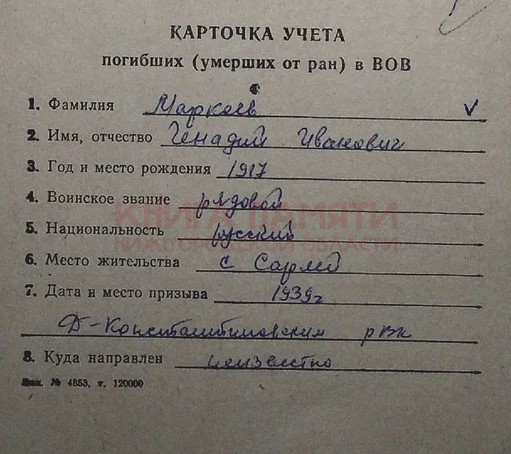 КАРТОЧКА УЧЕТА
погибших (умерших от ран) в ВОВ
1. Фамилия Маркеев
2. Имя, отчество Генадий Иванович
3. Год и место рождения 1917
4. Воинское звание рядовой
КНИГА ПАМЯТИ
5. Национальность русский
НИЖЕГОРОДСКОЙ ОБЛАСТИ
6. Место жительства с Сарлей
7. Дата и место призыва 1939г
Д-Константиновским рвк
8. Куда направлен неизвестно
Зак. № 4853, т. 120000